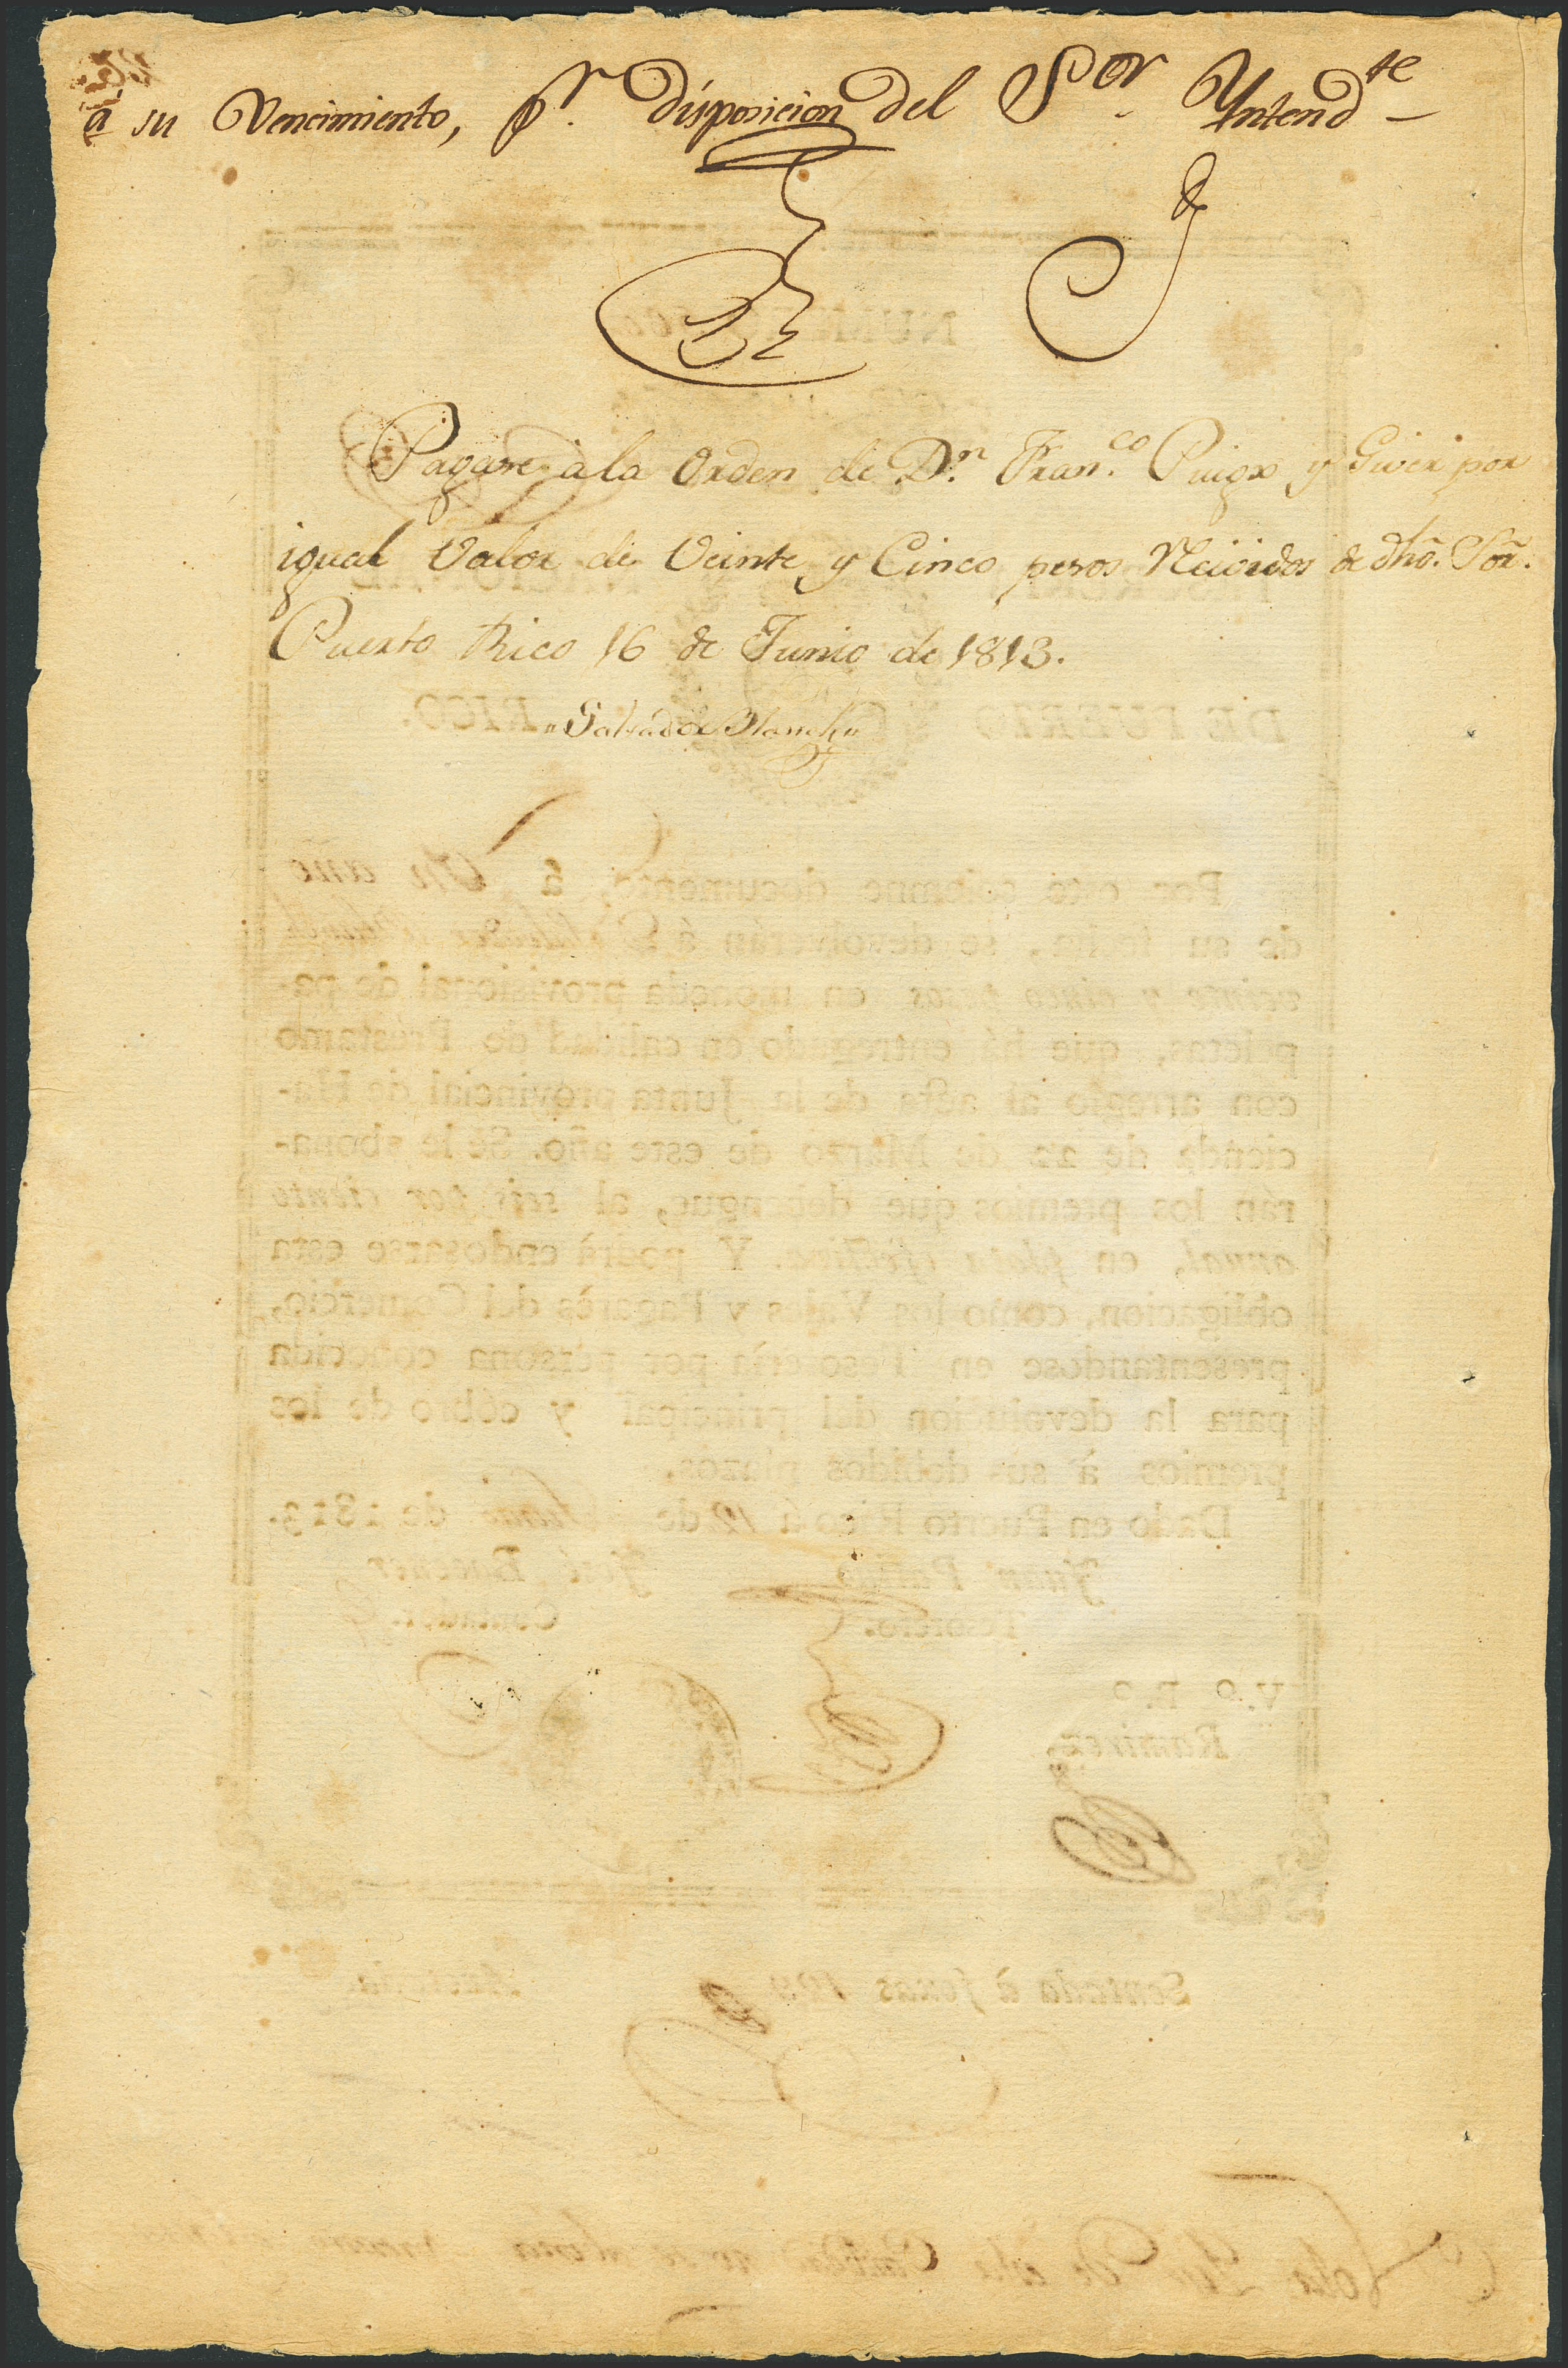 à su Vencimiento, pr. disposicion del Sor. Yntendte
Pagare à la Orden de Dn. Franco. Puigx y Giver por
igual Valor de Veinte y Cinco pesos Recividos de dhõ. Sõr.
Puerto Rico 16 de Junio de 1813.
Salvador Blanch
NUM
DE PUERTO RICO.
Por este solemne documento, à Un año
de su fecha, se devolverán á Salvador Blanch
veinte y cinco pesos en moneda provisional de pa-
peletas, que há entregado en calidad de Préstamo
con arreglo al acta de la Junta provincial de Ha-
cienda de 22 de Marzo de este año. Se le abona-
rán los premios que debengue, al seis por ciento
anual, en plata efectiva. Y podrà endosarse esta
obligacion, como los Vales y Pagarès del Comercio,
presentandose en Tesorería por persona conocida
para la devolucion del principal y cóbro de los
premios à sus debidos plazos.
Dado en Puerto Rico á 12 de Junio de 1813.
Juan Patiño José Bacener
Tesorero. Contador.
V.º B.º
Ramirez.
Sentada à foxas